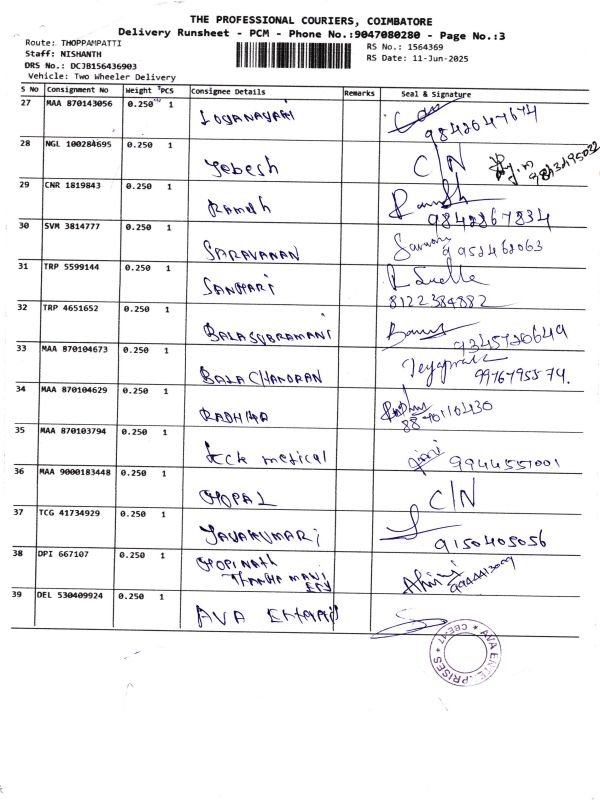 THE PROFESSIONAL COURIERS, COIMBATORE
Delivery Runsheet - PCM - Phone No.:9047080280 - Page No.:3
Route: THOPPAMPATTI
Staff: NISHANTH
DRS No.: DCJB156436903
Vehicle: Two Wheeler Delivery
RS No.: 1564369
RS Date: 11-Jun-2025
S No Consignment No Weight PCS Consignee Details Remarks Seal & Signature
27 MAA 870143056 0.250 1 9842647674
28 NGL 100284695 0.250 1 Jebesh C/N
29 CNR 1819843 0.250 1 Ramesh 9842267834
30 SVM 3814777 0.250 1 SARAVANAN 9952462063
31 TRP 5599144 0.250 1 SANHARI 8122384882
32 TRP 4651652 0.250 1 BALASUBRAMANI 9345720649
33 MAA 870104673 0.250 1 BALACHANDRAN 9976795574.
34 MAA 870104629 0.250 1 RADHIKA 8870116430
35 MAA 870103794 0.250 1 9944551001
36 MAA 9000183448 0.250 1 GOPAL C/N
37 TCG 41734929 0.250 1 JAYAKUMARI 9150405056
38 DPI 667107 0.250 1 GOPINATH
THANGAMANI
39 DEL 530409924 0.250 1 AVA
* AVA ENTERPRISES * CBE-17